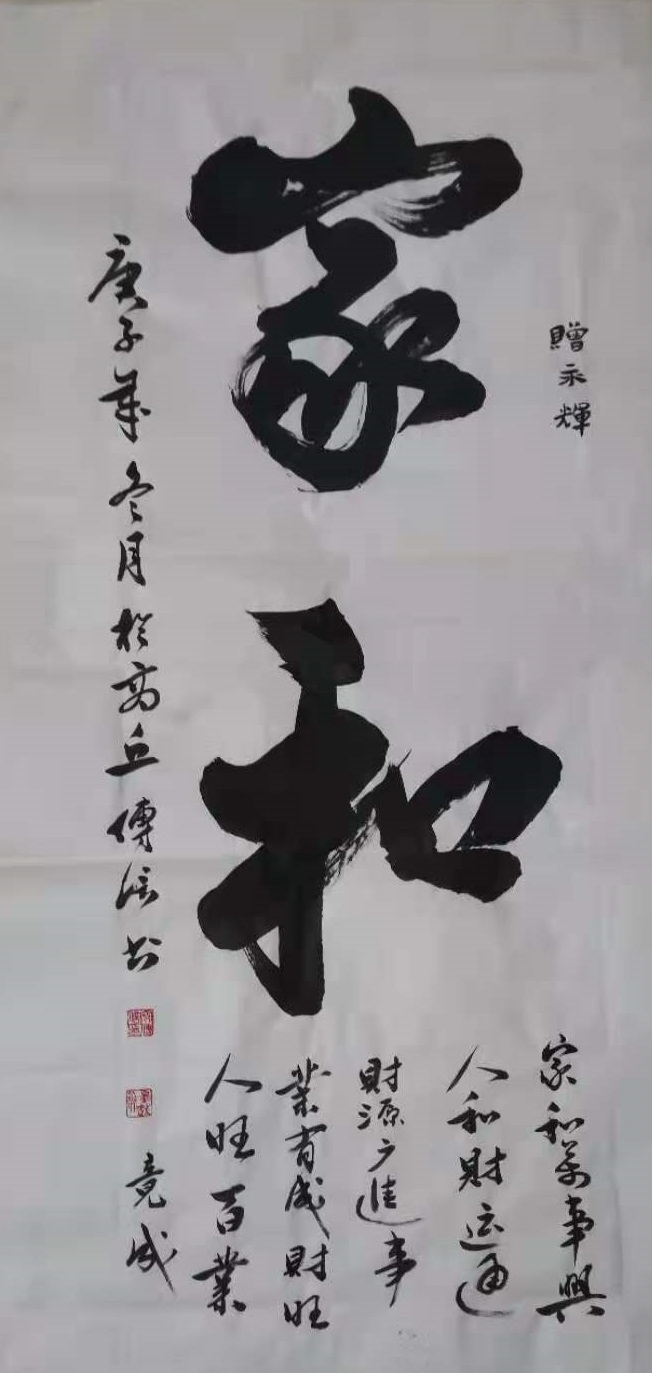 贈永輝
家和
家和萬事興
人和財运通
財源广進事
業有成財旺
人旺百業
竟成
庚子歲冬月於高丘傅书